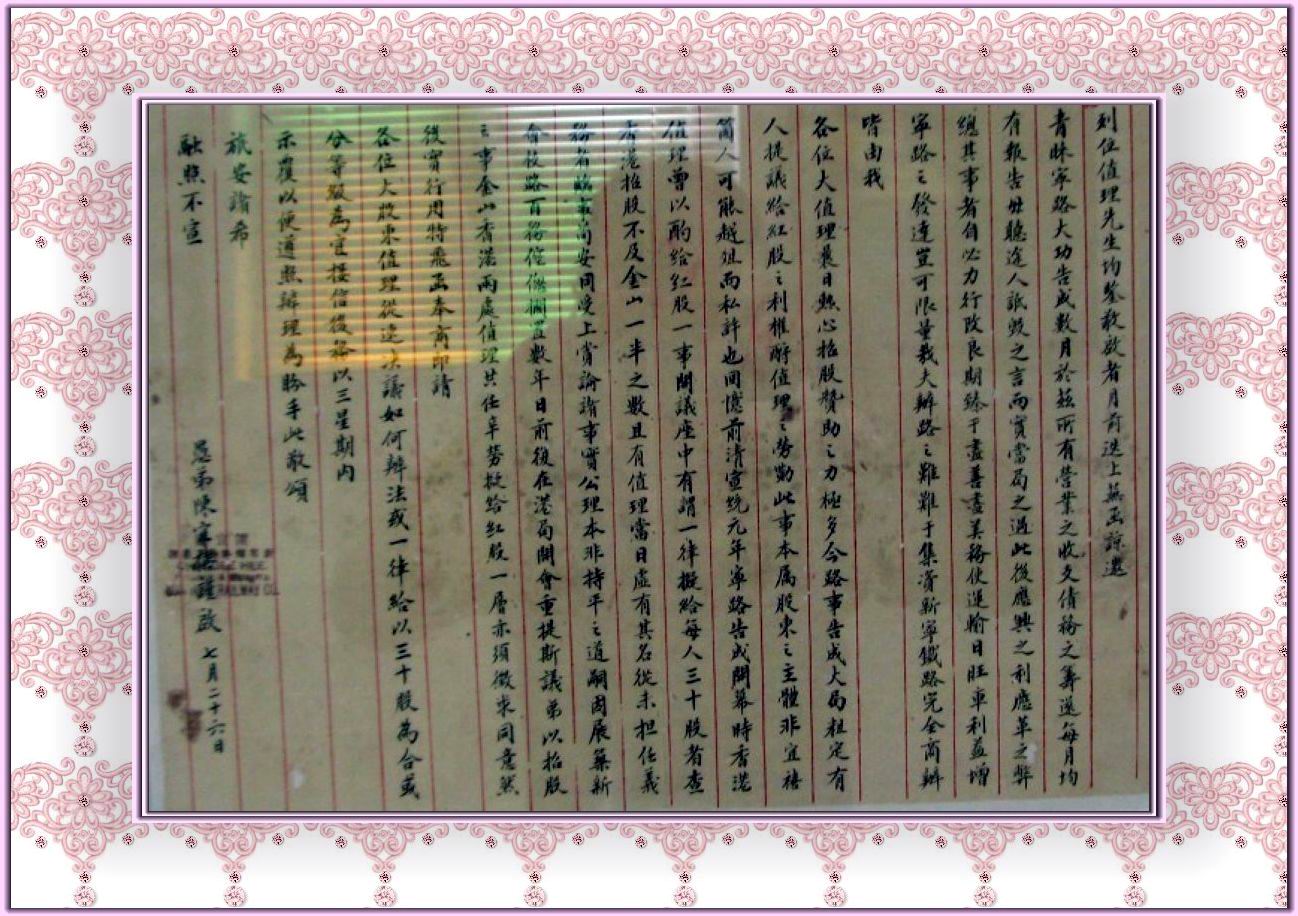 列位值理先生均鑒敬啟者月前迭上蕪函諒邀
青睞寧路大功告成數月於茲所有營業之收支債務之籌還每月均
有報告毋聽達人詆毀之言而實當局之過此後應興之利應革之弊
總其事者自必力行改良期臻于盡善盡美務使運輸日旺車利益增
寧路之發達豈可限量哉夫辦路之難難于集資新寧鐵路完全商辦
皆由我
各位大值理曩日熱心招股贊助之力極多今路事告成大局粗定有
人提議給紅股之利權酧值理之勞勩此事本属股東之主體非宜禧
箇人可能越俎而私許也回憶前清宣統元年寧路告成開幕時香港
值理曾以酌給紅股一事開議座中有謂一律擬給每人三十股者查
香港招股不及金山一半之數且有值理當日虛有其名從未担任義
務者臨事苟安同受上賞論諸事實公理本非持平之道嗣因展築新
會枝路百務倥偬擱置數年日前後在港局開會重提斯議弟以招股
之事金山香港兩處值理共任辛勞擬給紅股一層亦須徵求同意然
後實行用特飛函奉商即請
各位大股東值理從速決議如何辦法或一律給以三十股為合或
分等級為宜接信後務以三星期內
示覆以便遵照辦理為盼手此敬頌
旅安諸希
融照不宣
愚弟陳宜禧謹啟 七月二十六日